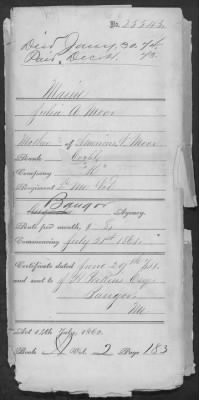 No. 25543
Died Jany. 30.
Paid, Dec.
Maine
Julia A. Moor
Mother of Moor
Rank Corpl
Company "K"
Regiment 2" Me. Vol
Bangor Agency.
Rate per month, $ 8
Commencing July 21st 1861.
Certificate dated June 29th
and sent to J. H.
Bangor
Me
Act 14th July, 1862.
Book A Vol. 2 Page 183